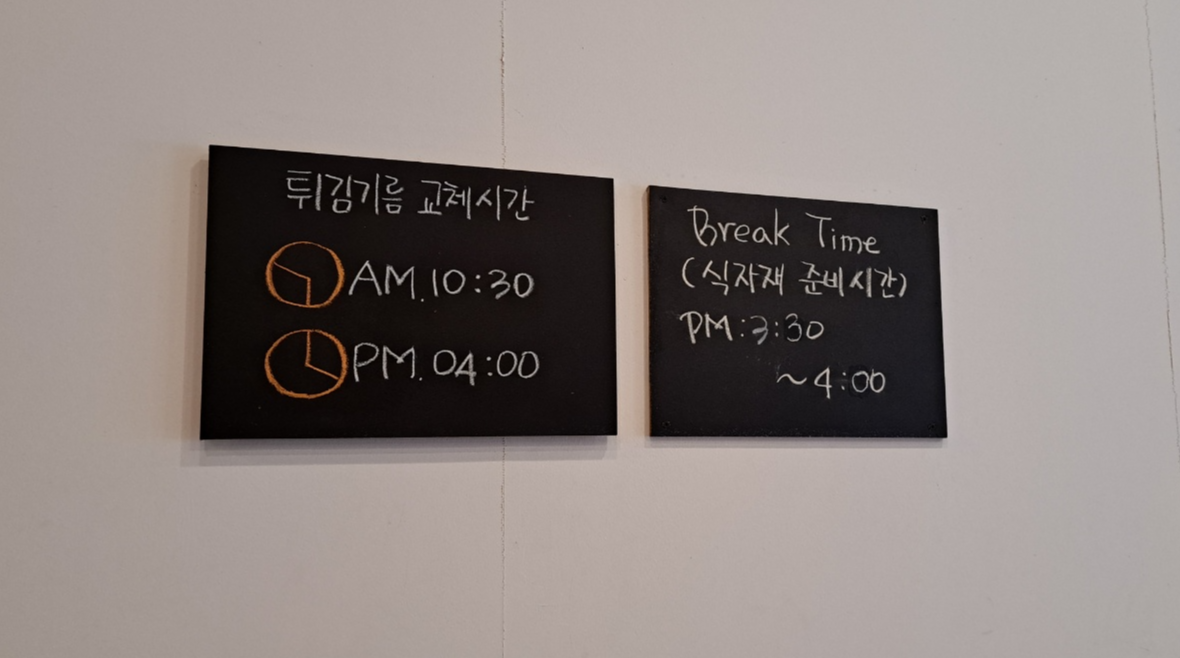 튀김기름 교체시간
AM.10:30
PM.04:00
Break Time
(식자재 준비시간)
PM:3:30
~4:00